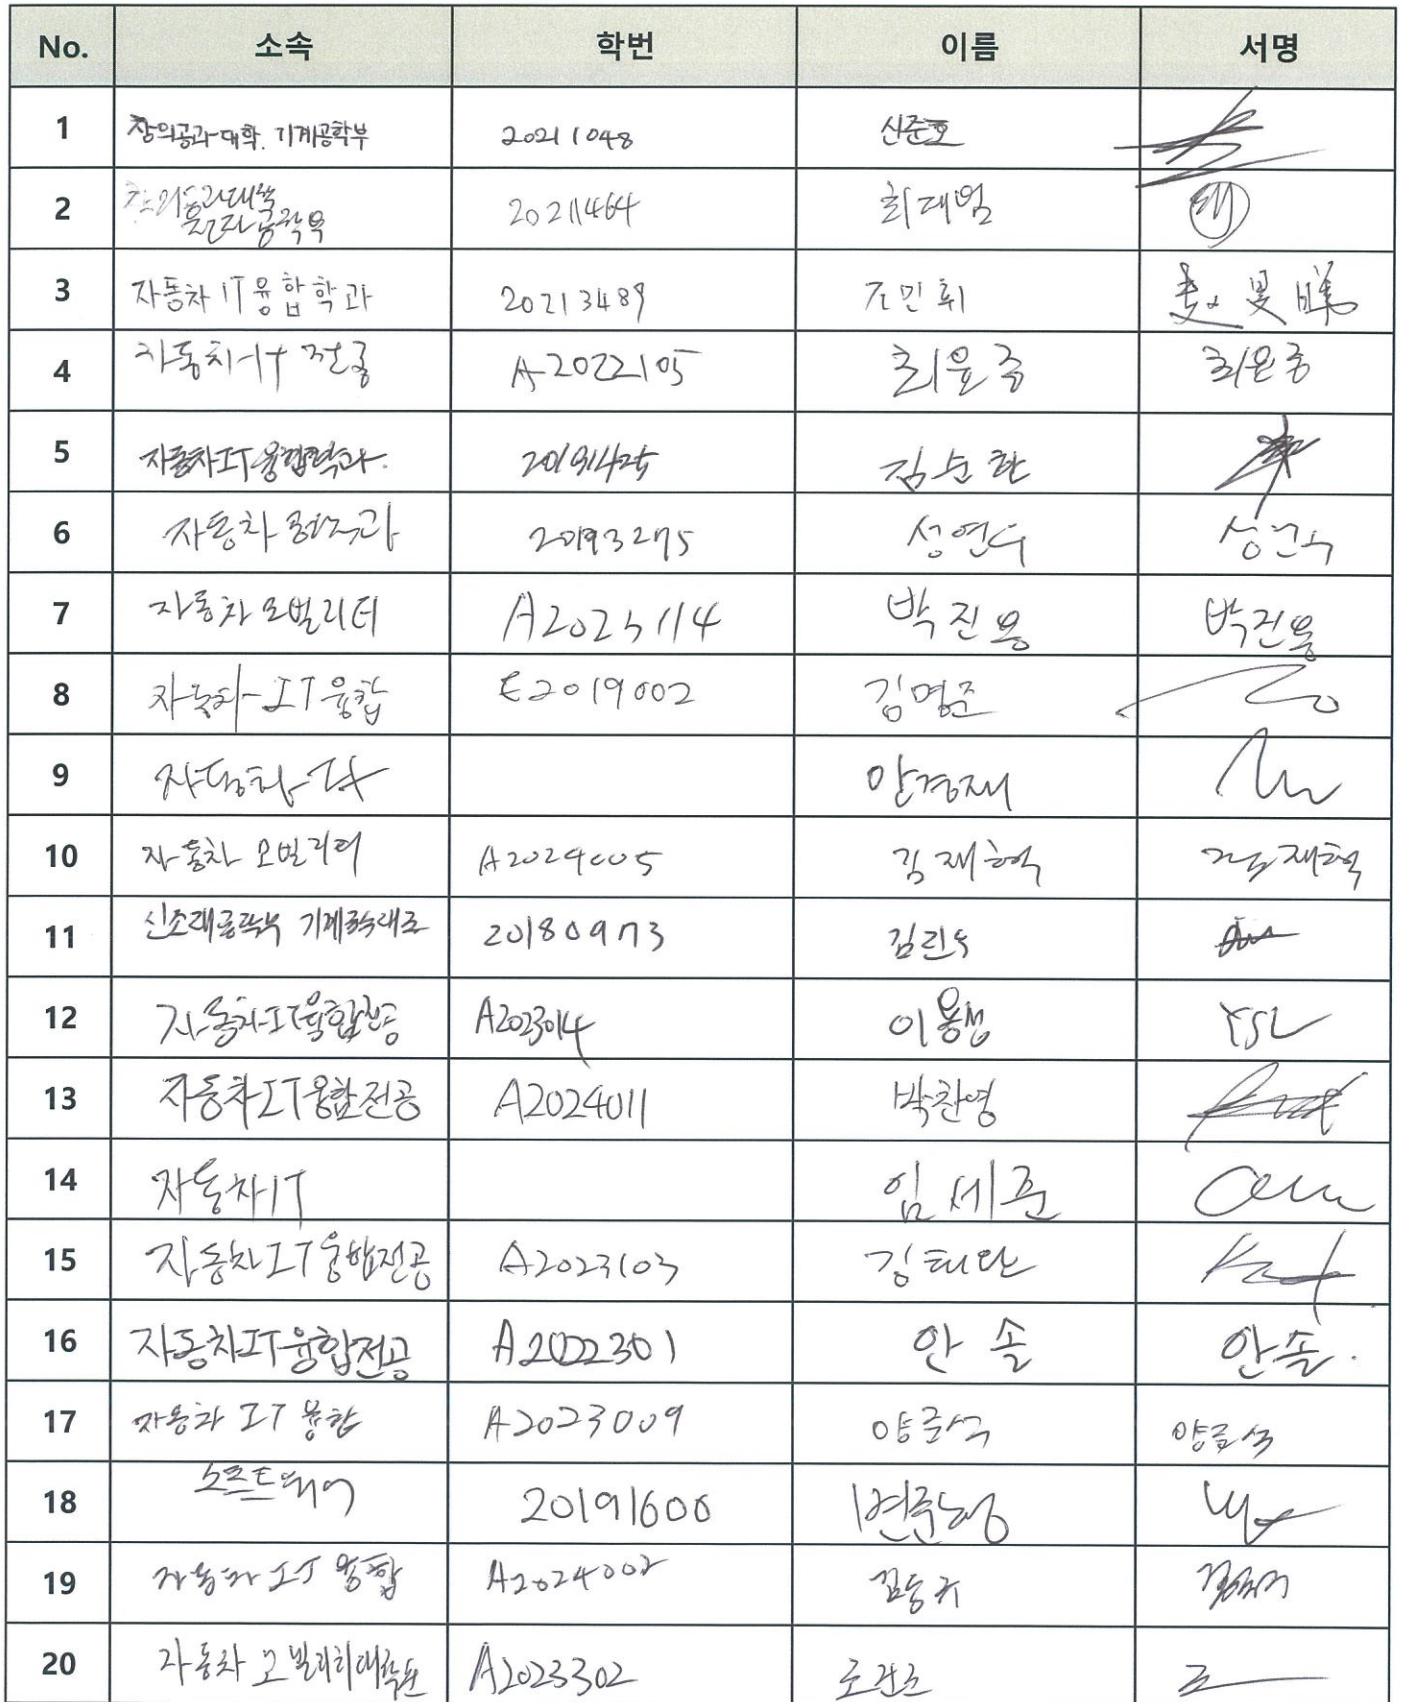 No. 소속 학번 이름 서명
1 창의공과대학. 기계공학부 20211048 신준호
2 창의공과대학 20211464 최대범
전자공학부
3 자동차IT융합학과 20213489 조민휘
4 자동차-IT 전공 A2022105 최윤종 최윤종
5 자동차IT융합학과. 20191425 김순환
6 자동차 20193275 성연수 성연수
7 자동차모빌리티 A2023114 박진용 박진용
8 자동차-IT융합 E2019002 김명준
9 자동차 안경재
10 자동차 모빌리티 A2024005 김재혁 김재혁
11 신소재공학부 20180973
12 자동차-IT융합전공 A2023014 이용성 YSL
13 자동차IT융합전공 A2024011 박찬영
14 자동차IT 임세준
15 자동차IT융합전공 A2023103
16 자동차IT융합전공 A2022301 안솔 안솔.
17 자동차 IT 융합 A2023009 양준석 양준석
18 소프트웨어 20191600
19 자동차 IT 융합 A2024002 김동규
20 자동차 모빌리티대학원 A2023302